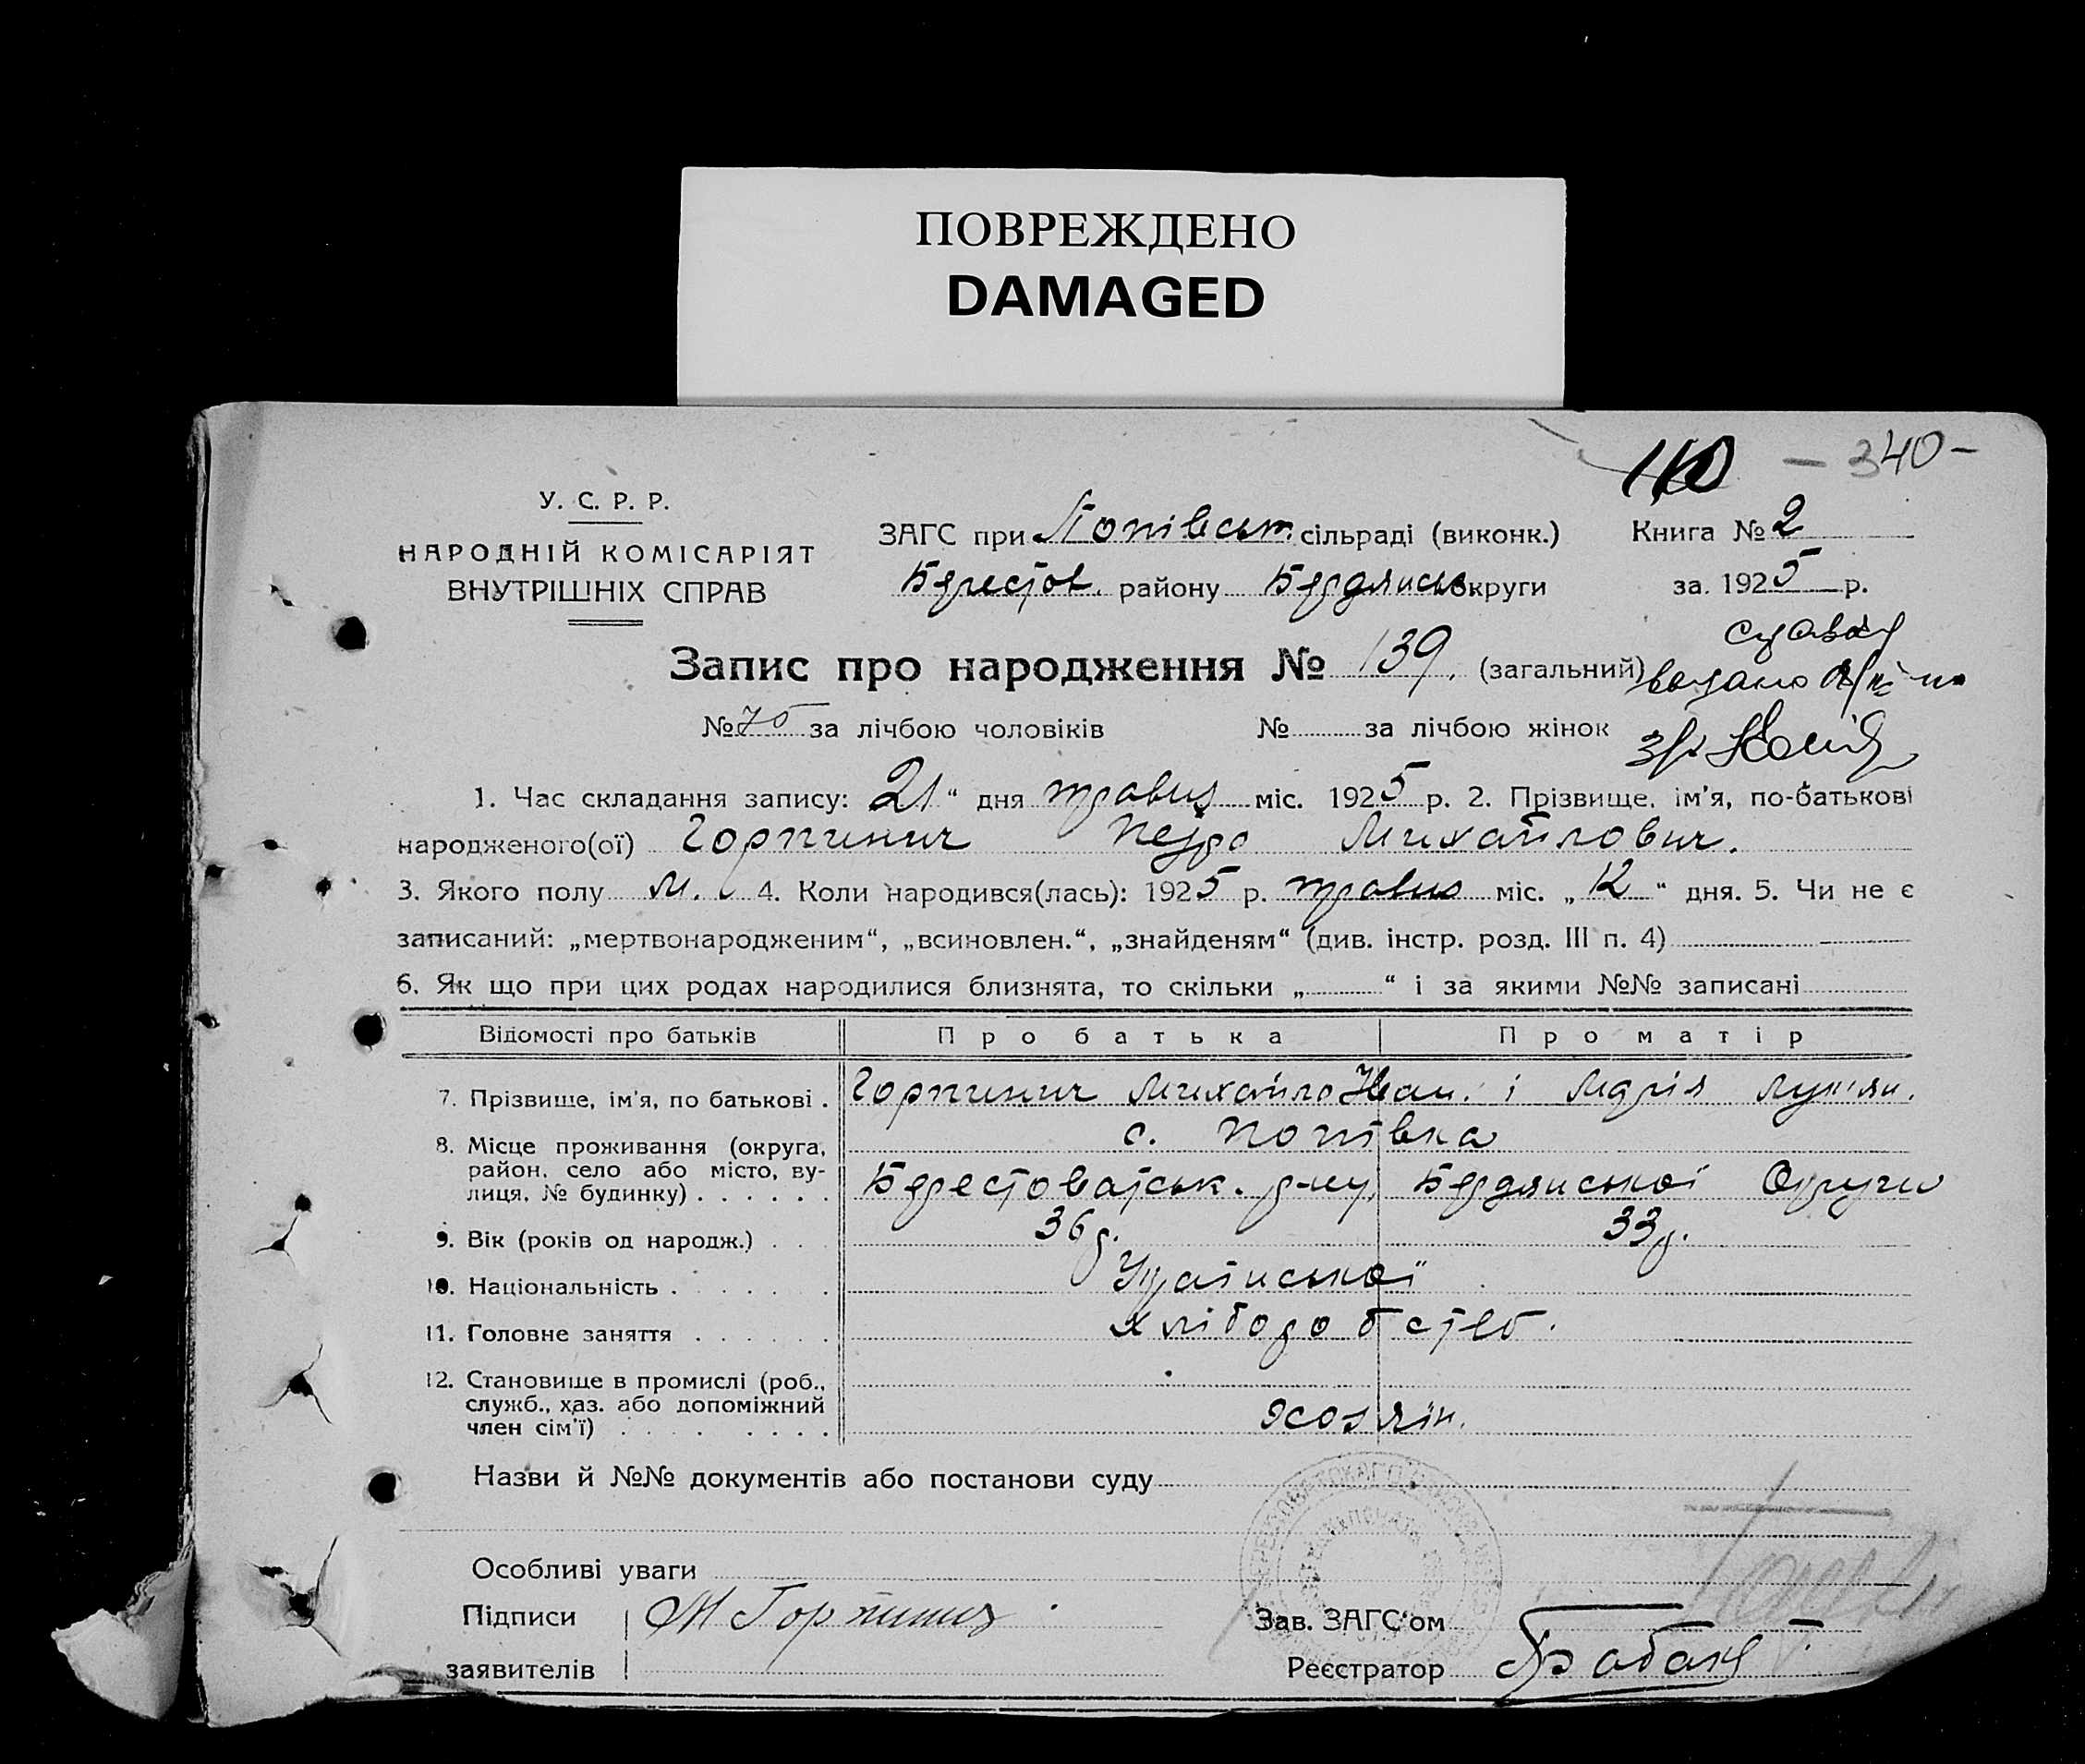 ПОВРЕЖДЕНО
DAMAGED
110 - 340 -
У. С. Р. Р.
НАРОДНІЙ КОМІСАРІЯТ
ВНУТРІШНІХ СПРАВ
ЗАГС при Попівськ. сільраді (виконк.) Книга № 2
Берестов. району Бердянськ округи за 1925 р.
Запис про народження № 139. (загальний)
видано
№ 75 за лічбою чоловіків № за лічбою жінок
1. Час складання запису: 21 “ дня травня міс. 1925 р. 2. Прізвище, ім’я, по-батькові
народженого(ої) Горпинич Петро Михайлович.
3. Якого полу м. 4. Коли народився(лась): 1925 р. травня міс. „ 12 “ дня. 5. Чи не є
записаний: „мертвонародженим“, „всиновлен.“, „знайденям“ (див. інстр. розд. III п. 4)
6. Як що при цих родах народилися близнята, то скільки „ “ і за якими №№ записані
Відомості про батьків Про батька Про матір
7. Прізвище, ім’я, по батькові . Горпинич Михайло Иван. і Марія Лукян.
8. Місце проживання (округа, район, село або місто, вулиця, № будинку) . . . . . . с. Попівка
Берестоватськ. р-ну, Бердянської Округи
9. Вік (років од народж.) . . . 36 р. 33 р.
10. Національність . . . . . . Української
11. Головне заняття . . . . . . хліборобство.
12. Становище в промислі (роб., служб., хаз. або допоміжний член сім’ї) . . . . . . . . хозяїн.
Назви й №№ документів або постанови суду
Особливі уваги
Підписи М Горпинич
Зав. ЗАГС’ом
заявителів
Реєстратор